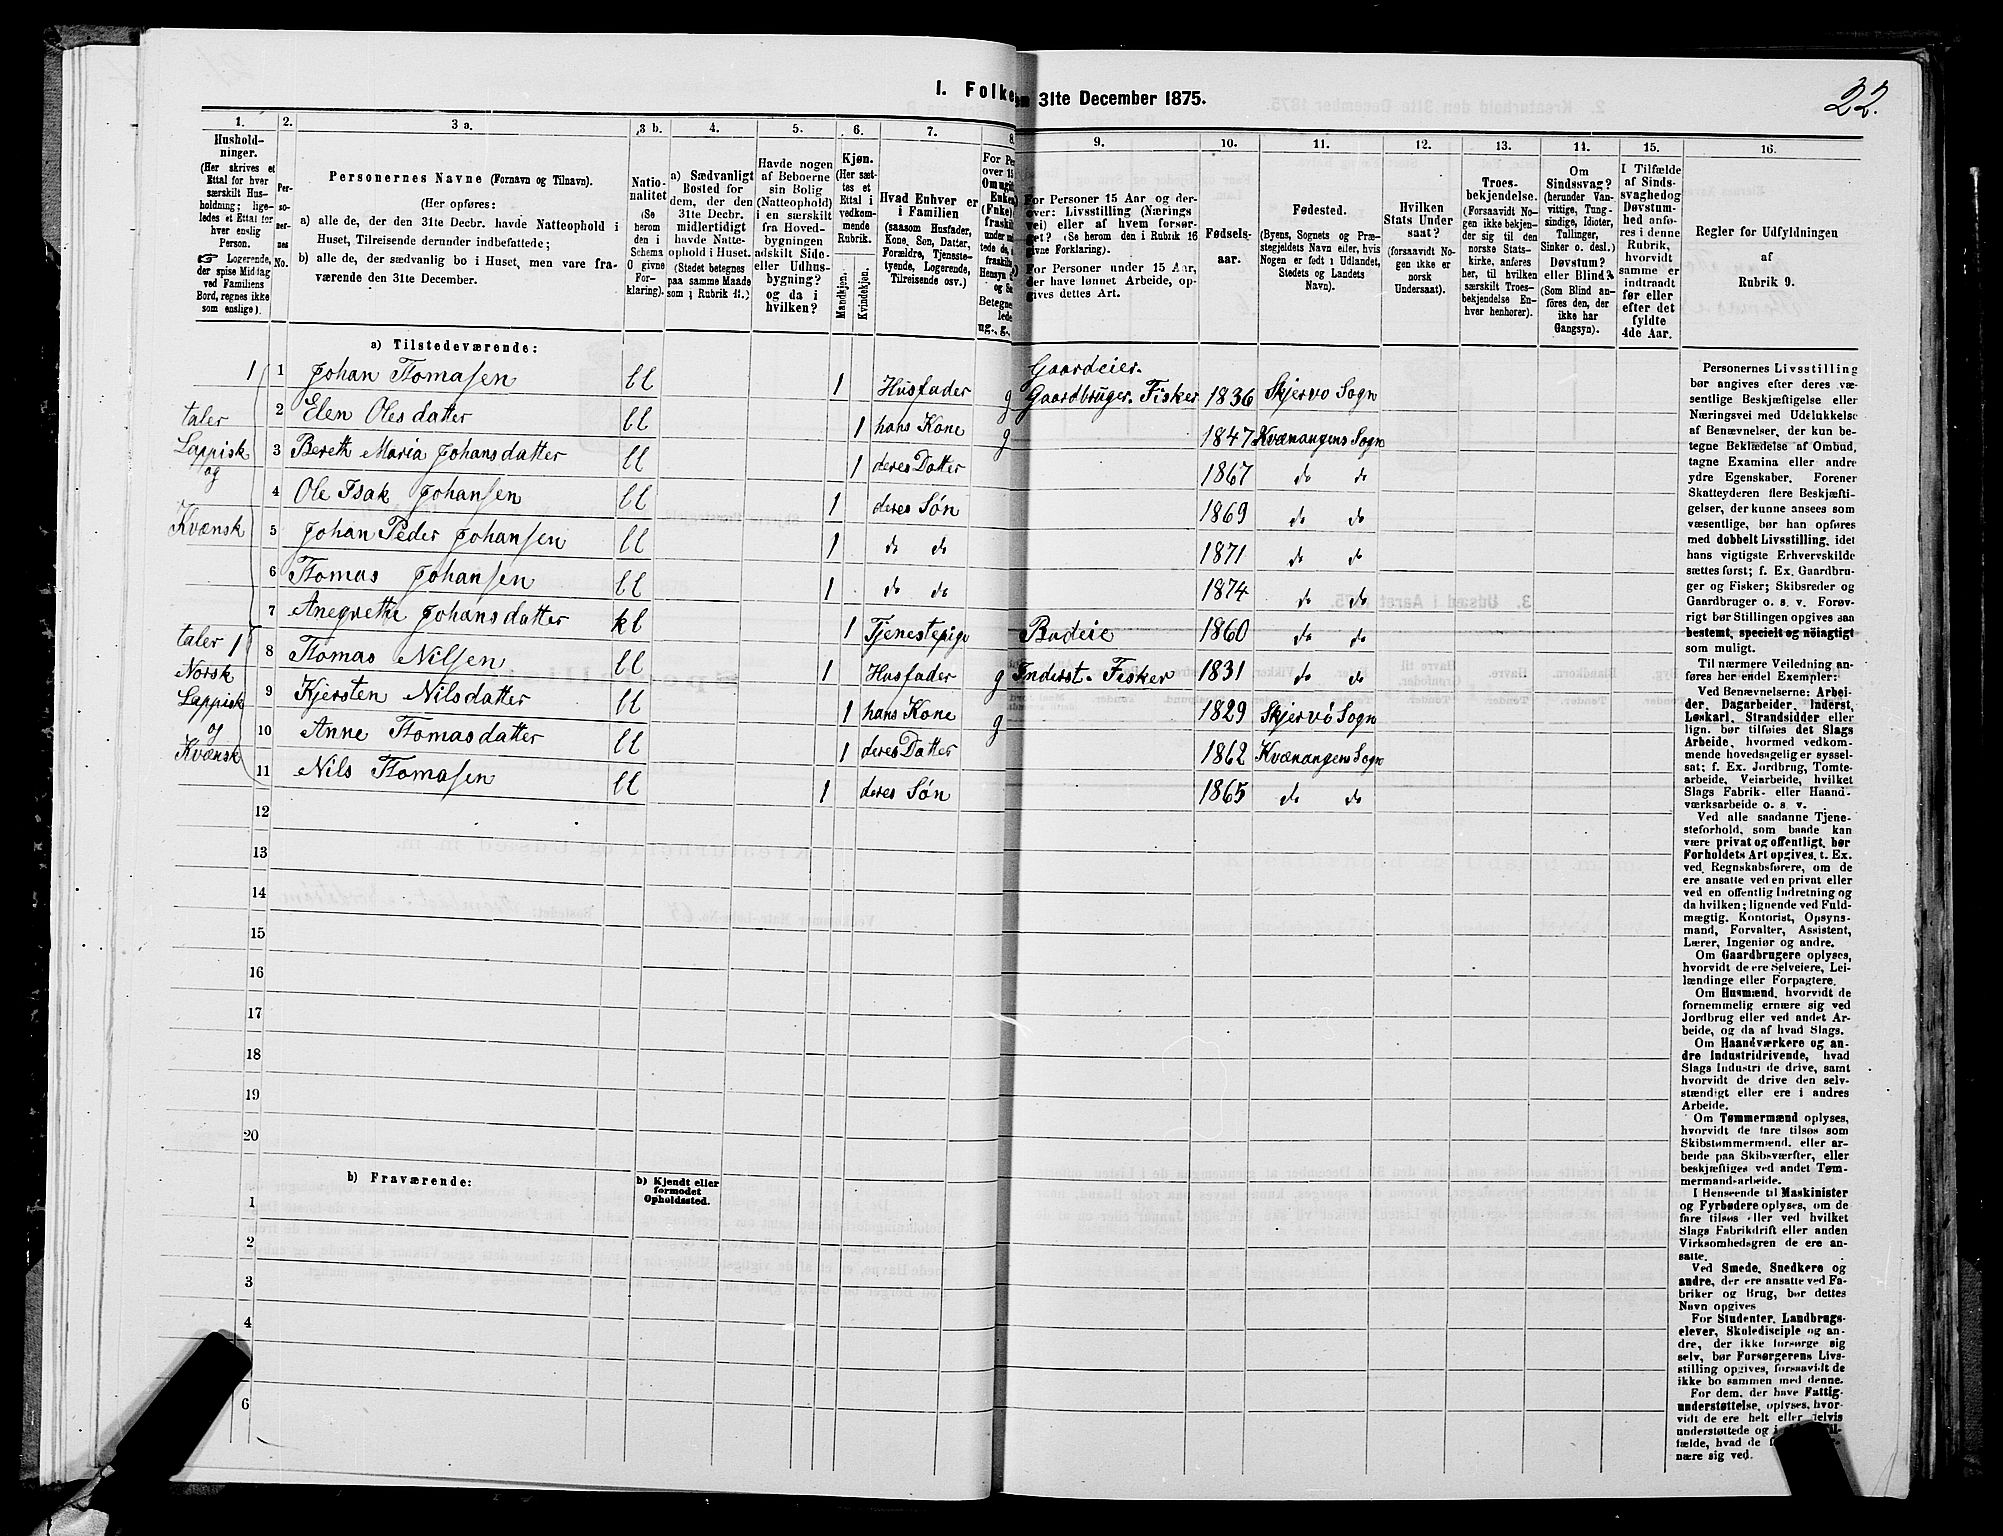 22.
I. Folke
am 31te December 1875.
1.
Hushold-
ninger.
(Her skrives et
Ettal for hver
særskilt Hus-
holdning; lige-
ledes et Ettal for
hver enslig
Person.
☞ Logerende,
der spise Middag
ved Familiens
Bord, regnes ikke
som enslige).
2.
Per-
so-
ner-
nes
No.
3 a.
Personernes Navne (Fornavn og Tilnavn).
(Her opføres:
a) alle de, der den 31te Decbr. havde Natteophold i
Huset, Tilreisende derunder indbefattede;
b) alle de, der sædvanlig bo i Huset, men vare fra-
værende den 31te December.
3 b.
Natio-
nalitet
(Se
herom
den i
Schema
O givne
For-
klaring).
4.
a) Sædvanligt
Bosted for
dem, der den
31te Decbr.
midlertidigt
havde Natte-
ophold i Huset.
(Stedet betegnes
paa samme Maade
som i Rubrik 11.)
5.
Havde nogen
af Beboerne
sin Bolig
(Natteophold)
i en særskilt
fra Hoved-
bygningen
adskilt Side-
eller Udhus-
bygning?
og da i
hvilken?
6.
Kjøn.
(Her sæt-
tes et
Ettal i
vedkom-
mende
Rubrik.
Mandkjøn.
Kvindekjøn.
7.
Hvad Enhver er
i Familien
(saasom Husfader,
Kone, Søn, Datter,
Forældre, Tjeneste-
tyende, Logerende,
Tilreisende osv.)
8.
For Per
over 15
Om ugift
Enkem
(Fnke)
fraskilt
under
tede de,
fraskilte
Hensyn
og Se
Betegne
lede
ug., g.,
9.
For Personer 15 Aar og der-
over: Livsstilling (Nærings
vei) eller af hvem forsør-
get? (Se herom den i Rubrik 16
givne Forklaring).
For Personer under 15 Aar,
der have lønnet Arbeide, op-
gives dettes Art.
10.
Fødsels-
aar.
11.
Fødested.
(Byens, Sognets og Præ-
stegjeldets Navn eller, hvis
Nogen er født i Udlandet,
Stedets og Landets
Navn).
12.
Hvilken
Stats Under
saat?
(forsaavidt No-
gen ikke er
norsk
Undersaat).
13.
Troes-
bekjendelse.
(Forsaavidt No-
gen ikke bekjen-
der sig til den
norske Stats-
kirke, anføres
her, til hvilken
særskilt Troes-
bekjendelse En-
hver henhører).
14.
Om
Sindssvag?
(herunder Van-
vittige, Tung-
sindige, Idioter,
Tullinger,
Sinker o. desl.)
Døvstum?
eller Blind?
(Som Blind an-
føres den, der
ikke har
Gangsyn).
15.
I Tilfælde
af Sinds-
svaghed og
Døvstum-
hed anfø-
res i denne
Rubrik,
hvorvidt
samme er
indtraadt
før eller
efter det
fyldte
4de Aar.
16.
Regler for Udfyldningen
af
Rubrik 9.
a) Tilstedeværende:
1 1 Johan Thomasen ll 1 Husfader g Gaardeier. Gaardbruger. Fisker 1836 Skjervø Sogn
taler 2 Elen Olesdatter ll 1 hans Kone g 1847 Kvænangens Sogn
Lappisk 3 Bereth Maria Johansdatter ll 1 deres Datter 1867 do do
og 4 Ole Isak Johansen ll 1 deres Søn 1869 do do
Kvænsk 5 Johan Peder Johansen ll 1 do do 1871 do do
6 Thomas Johansen ll 1 do do 1874 do do
7 Anegrethe Johansdatter kl 1 Tjenestepige Budeie 1860 do do
taler 1 8 Thomas Nilsen ll 1 Husfader g Inderst. Fisker 1831 do do
Norsk
Lappisk 9 Kjersten Nilsdatter ll 1 hans Kone g 1829 Skjervø Sogn
og 10 Anne Thomasdatter ll 1 deres Datter 1862 Kvænangens Sogn
Kvænsk 11 Nils Thomasen ll 1 deres Søn 1865 do do
12
13
14
15
16
17
18
19
20
b) Fraværende:
b) Kjendt eller
formodet
Opholdssted.
1
2
3
4
5
6
Personernes Livsstilling
bør angives efter deres væ-
sentlige Beskjæftigelse eller
Næringsvei med Udelukkelse
af Benævnelser, der kun be-
tegne Beklædelse af Ombud,
tagne Examina eller andre
ydre Egenskaber. Forener
Skatteyderen flere Beskjæfti-
gelser, der kunne ansees som
væsentlige, bør han opføres
med dobbelt Livsstilling, idet
hans vigtigste Erhvervskilde
sættes først; f. Ex. Gaardbru-
ger og Fisker; Skibsreder og
Gaardbruger o. s. v. Forøv-
rigt bør Stillingen opgives saa
bestemt, specielt og nöiagtigt
som muligt.
Til nærmere Veiledning an-
føres her endel Exempler:
Ved Benævnelserne: Arbei-
der, Dagarbeider, Inderst,
Løskarl, Strandsidder eller
lign. bør tilføies det Slags
Arbeide, hvormed vedkom-
mende hovedsagelig er syssel-
sat; f. Ex. Jordbrug, Tomte-
arbeide, Veiarbeide, hvilket
Slags Fabrik- eller Haand-
værksarbeide o. s. v.
Ved alle saadanne Tjene-
steforhold, som baade kan
være privat og offentligt, bør
Forholdets Art opgives, t. Ex.
ved Regnskabsførere, om de
ere ansatte ved en privat eller
ved en offentlig Indretning og
da hvilken; lignende ved Fuld-
mægtig, Kontorist, Opsyns-
mand, Forvalter, Assistent,
Lærer, Ingeniør og andre.
Om Gaardbrugere oplyses,
hvorvidt de ere Selveiere, Lei-
lændinge eller Forpagtere.
Om Husmænd, hvorvidt de
fornemmelig ernære sig ved
Jordbrug eller ved andet Ar-
beide, og da af hvad Slags.
Om Haandværkere og an-
dre Industridrivende, hvad
Slags Industri de drive, samt
hvorvidt de drive den selv-
stændigt eller ere i andres
Arbeide.
Om Tømmermænd oplyses,
hvorvidt de fare tilsøs som
Skibstømmermænd, eller ar-
beide paa Skibsværfter, eller
beskjæftiges ved andet Tøm-
mermand-arbeide.
I Henseende til Maskinister
og Fyrbødere oplyses, om de
fare tilsøs eller ved hvilket
Slags Fabrikdrift eller anden
Virksomhedsgren de ere an-
satte.
Ved Smede, Snedkere og
andre, der ere ansatte ved Fa-
briker og Brug, bør dettes
Navn opgives
For Studenter, Landbrugs-
elever, Skoledisciple og an-
dre, der ikke forsørge sig
selv, bør Forsørgerens Livs-
stilling opgives, forsaavidt de
ikke bo sammen med denne.
For dem, der have Fattig-
understøttelse, oplyses, hvor-
vidt de ere helt eller delvis
understøttede og i
fælde, hvad de
nære sig ved.